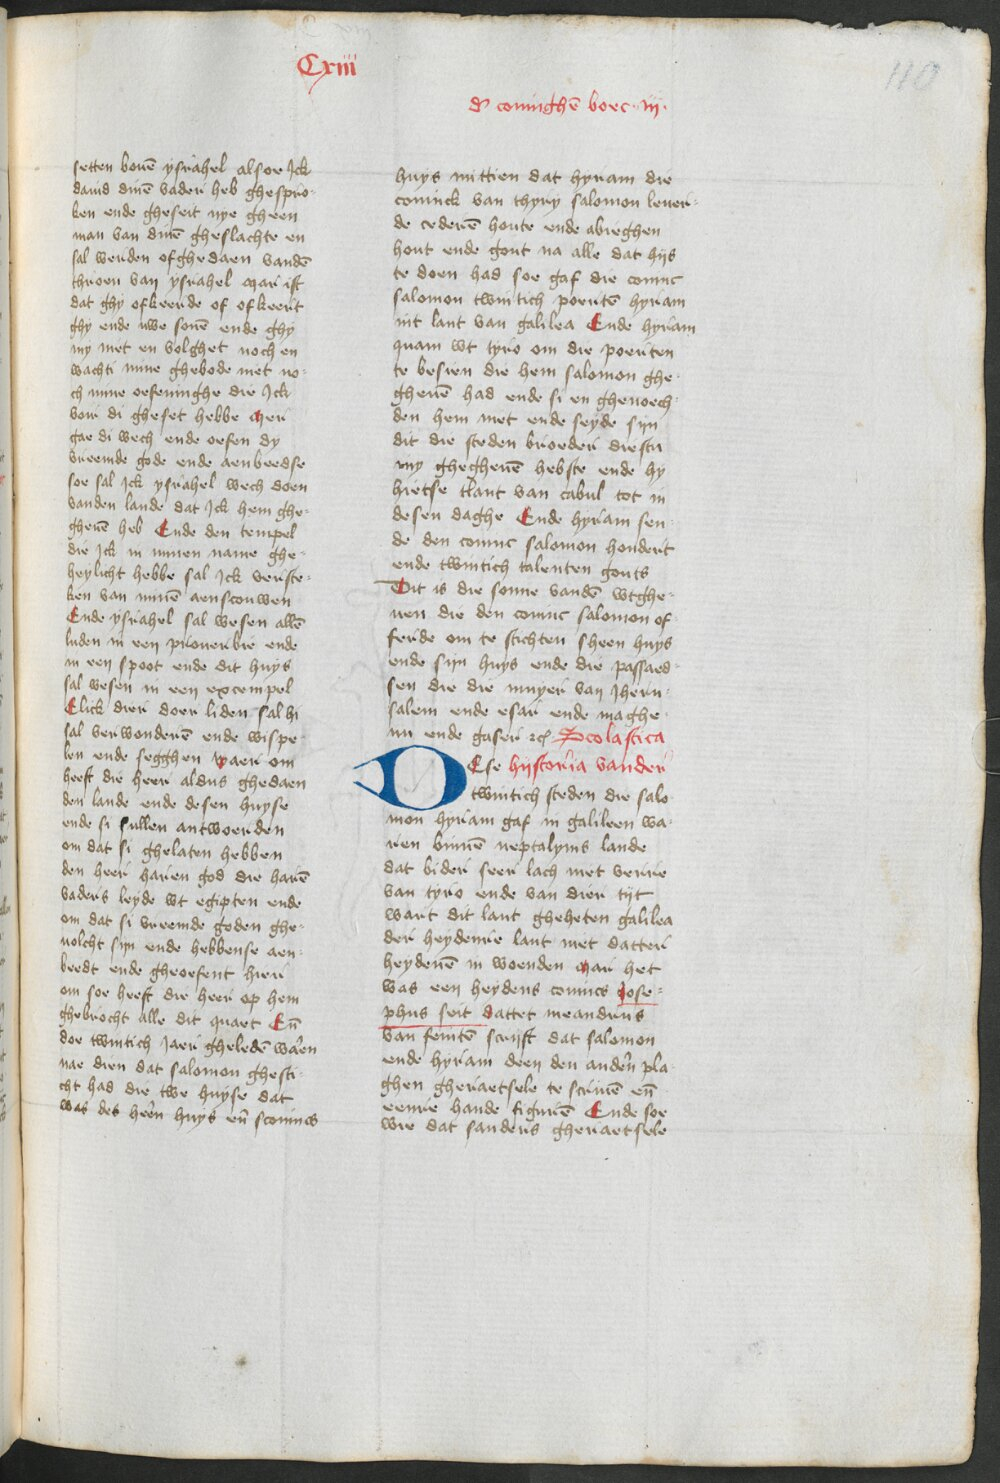 Cxiii
110
d' coninghē boec · iij ·
setten bouē ysrahel alsoe Jck
dauid dinē vader heb ghespro-
ken ende gheseit nye gheen
man van dinē gheslachte en
sal werden ofghedaen vandē
throen van ysrahel Mar ist
dat ghy ofkeerde of ofkeert
ghy ende uwe sonē ende ghy
my niet en volghet noch en
wachti mine ghebode niet no-
ch mine oefeninghe die Jck
voir di gheset hebbe Mer
gae di wech ende oefen dy
vreemde gode ende aenbeedse
soe sal Jck ysrahel wech doen
vanden lande dat Jck hem ghe-
gheuē heb Ende den tempel
die Jck in minen name ghe-
heylicht hebbe sal Jck verste-
ken van minē aenscouwen
Ende ysrahel sal wesen allē
luden in een prouerbie ende
in een spoot ende dit huys
sal wesen in een excempel
Elick dier doer liden sal hi
sal verwonderē ende wispe-
len ende segghen Waer om
heeft die heer aldus ghedaen
den lande ende desen huyse
ende si sullen antwoerden
om dat si ghelaten hebben
den heer haren god die harē
vaders leyde wt egipten ende
om dat si vreemde goden ghe-
uolcht sijn ende hebbense aen-
beedt ende gheoefent hier
om soe heeft die heer op hem
ghebrocht alle dit quaet Eñ
doe twintich Jaer gheledē warē
nae dien dat salomon ghesti-
cht had die twe huyse dat
was des herē huys eñ sconincs
huys mittien dat hyram die
coninck van thyry salomon leuer-
de cederē houte ende abieghen
hout ende gout na alle dat hijs
te doen had soe gaf die coninc
salomon twintich poertē hyram
int lant van galilea Ende hyram
quam wt tyro om die poerten
te besien die hem salomon ghe-
gheuē had ende si en ghenoech-
den hem niet ende seyde sijn
dit die steden broeder diestu
my ghegheuē hebste ende hy
hietse tlant van cabul tot in
desen daghe Ende hyram sen-
de den coninc salomon hondert
ende twintich talenten gouts
Dit is die somme vandē wtghe-
uen die den coninc salomon of-
ferde om te stichten sheen huys
ende sijn huys ende die passaed-
sen die die muyer van Jheru-
salem ende esar ende maghe-
un ende gaser etc̃ Scolastica
DEse hijstoria vander
twintich steden die salo-
mon hyram gaf in galileen wa-
ren binnē neptalyms lande
dat bider seer lach niet verre
van tyro ende van dier tijt
wart dit lant gheheten galilea
der heydenre lant niet datter
heydenē in woenden Mar het
was een heydens conincs Jose-
phus seit dattet meandrus
van feintē scrijft dat salomon
ende hyram deen den anderē pla-
ghen gheraetsele te scriuē eñ
eenre hande figurē Ende soe
wie dat sanders gheraetsele